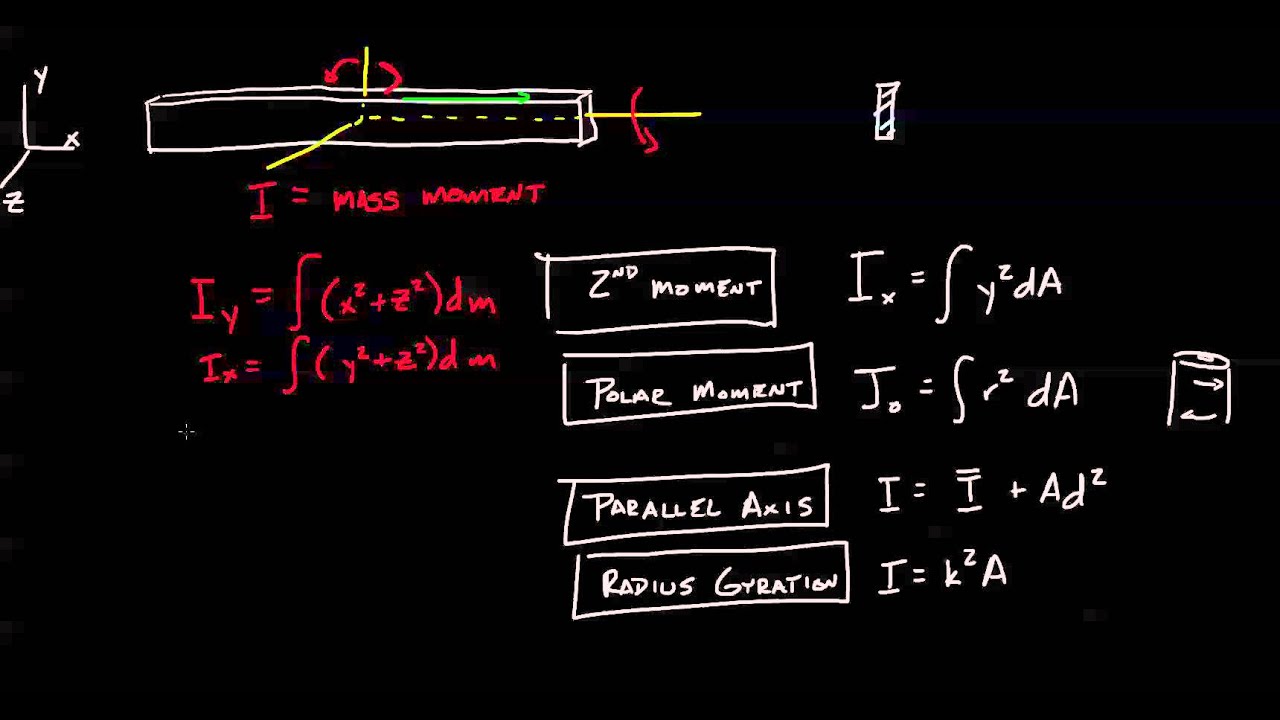 Y
X
Z
I = MASS MOMENT
I_y = ∫(x²+z²)dm
I_x = ∫(y²+z²)dm
2ND MOMENT I_x = ∫y²dA
POLAR MOMENT J_o = ∫r² dA
PARALLEL AXIS I = Ī + Ad²
RADIUS GYRATION I = k²A